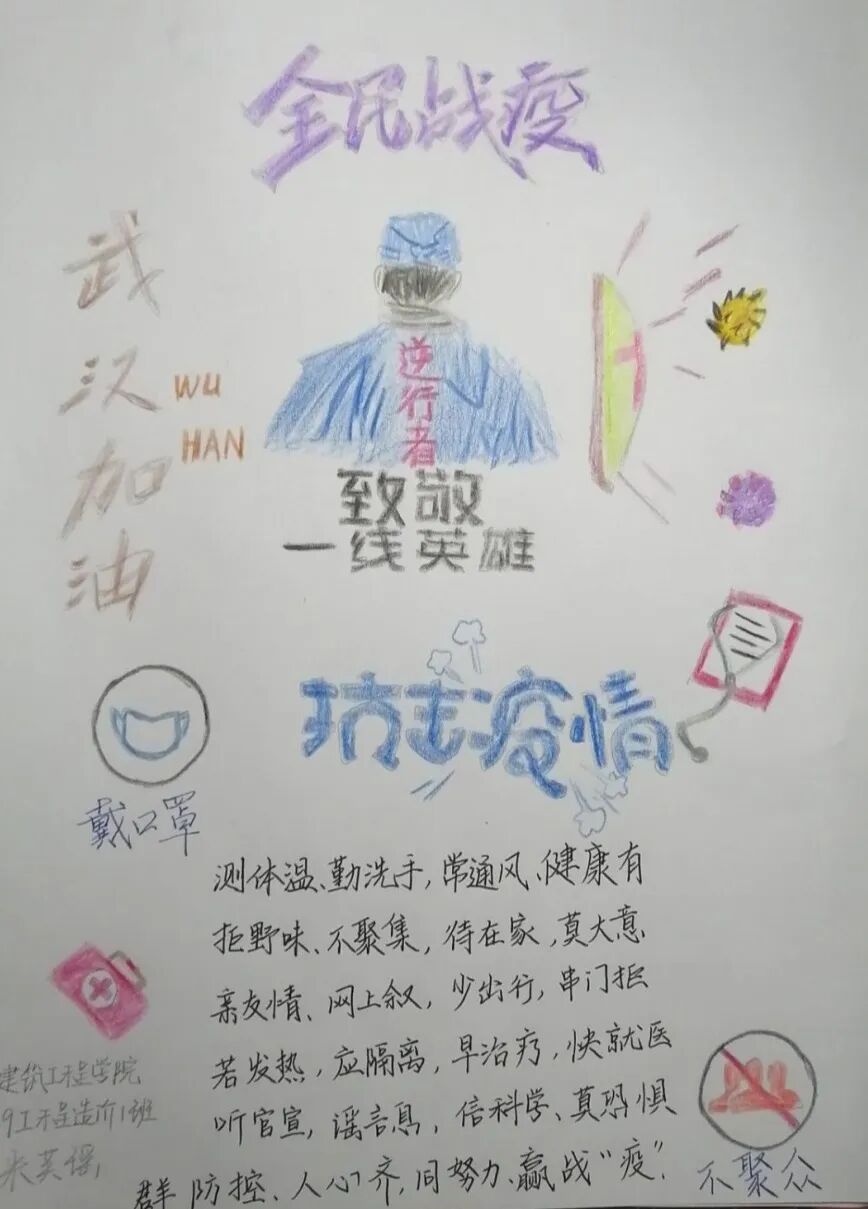 全民战疫
武汉加油
WU
HAN
逆行者
致敬
一线英雄
抗击疫情
戴口罩
测体温、勤洗手,常通风、健康有
拒野味、不聚集,待在家,莫大意
亲友情、网上叙,少出行,串门拒
若发热,应隔离,早治疗,快就医
听官宣,谣言息,信科学、莫恐惧
群防控、人心齐,同努力、赢战“疫”.
不聚众
建筑工程学院
9工程造价1班